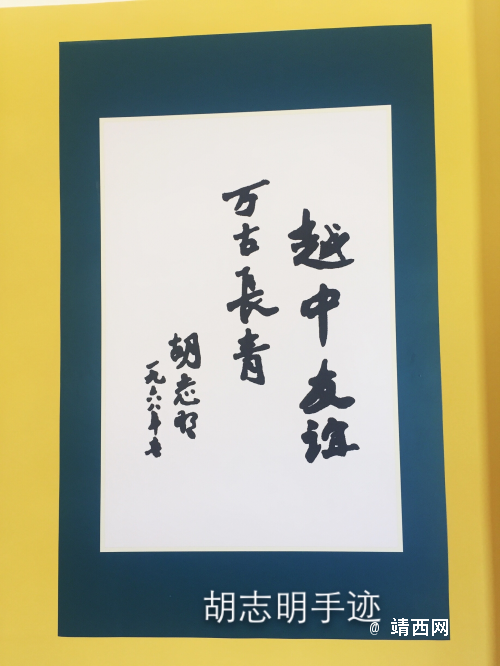 越中友谊
万古長青
胡志明
一九六八年春
胡志明手迹
@ 靖西网